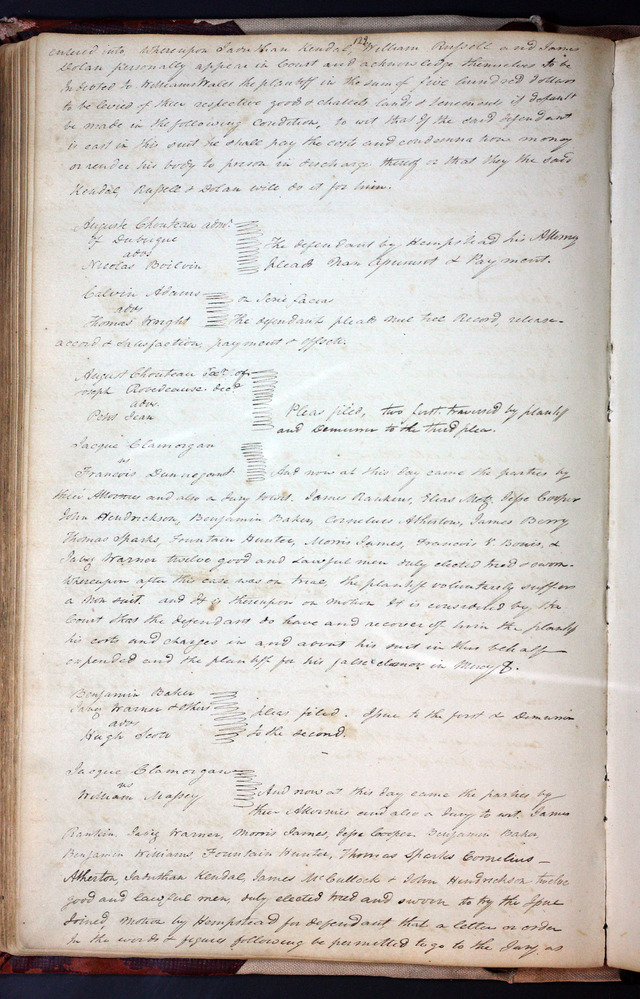 129
entered into whereupon Jaduthan Kendal, William Russell and James
Dolan personally appear in Court and acknowledge themselves to be
Indebted to William Wales the plaintiff in the sum of five hundred dollars
to be levied of their respective goods & chattels lands & tenements if default
be made in the following Condition, to wit that if the said defendant
is cast in this suit he shall pay the costs and condemnation money
or render his body to prison in discharge thereof or that they the said
Kendal, Russell & Dolan will do it for him.
Auguste Chouteau admr.
of Dubuque
ads
Nicolas Boilvin
The defendant by Hempstead his Attorney
pleads Non assumpsit & Payment.
Calvin Adams
ads
Thomas Wright
on Scire facias
The defendant pleads Nul tiel Record, release
accord & Satisfaction, payment & offsett.
August Chouteau Exr. of
Joseph Robedeause decd
ads.
Petit Jean
Pleas filed, two first traversed by plaintiff
and Demurrer to the third plea.
Jacque Clamorgan
vs
Francois
And now at this day came the parties by
their Attornies and also a Jury towit. James Rankins, Elias Motz Jesse Cooper
John Hendrickson, Benjamin Baker, Cornelius Atherton, James Berry
Thomas Sparks, Fountain Hunter, Morris James, Francois V. Bouis, &
Jabez Warner twelve good and Lawful men duly elected tried & sworn
Whereupon after this case was on trial, the plaintiff voluntarily suffers
a Non suit. and It is thereupon on motion It is considered by the
Court that the defendant do have and recover of him the plaintiff
his costs and charges in and about his suit in this behalf
expended and the plaintiff for his false clamor in Mercy &.
Benjamin Baker
Jabez Warner & others
ads
Hugh Scott
pleas filed. Issue to the first & Demurrer
to the second.
Jacque Clamorgan
vs
William Massey
And now at this day came the parties by
their Attornies and also a Jury to wit. James
Rankin Jabez Warner, Morris James, Jesse Cooper Benjamin Baker,
Benjamin Williams, Fountain Hunter, Thomas Sparks Cornelius
Atherton, Jaduthan Kendal James McCullock & John Hendrickson twelve
good and lawful men, duly elected tried and sworn to try the Issue
Joined, motion by Hempstead for defendant, that a letter or order
in the words & figures following be permitted to go to the Jury, as